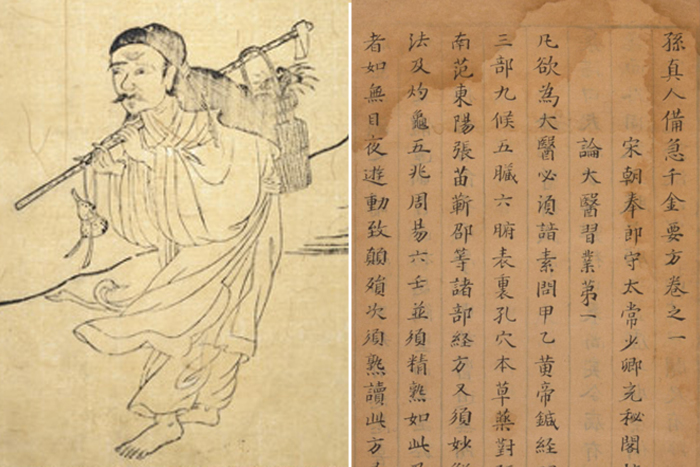 孫真人備急千金要方卷之一
宋朝奉郎守太常少卿光秘閣
論大醫習業第一
凡欲為大醫必湏諳素問甲乙黃帝鍼經
三部九候五臟六腑表裏孔穴本草藥對
南范東陽張苗靳邵等諸部経方又須妙
法及灼龜五兆周易六壬並須精熟如此
者如無目夜遊動致顛殞次須熟讀此方